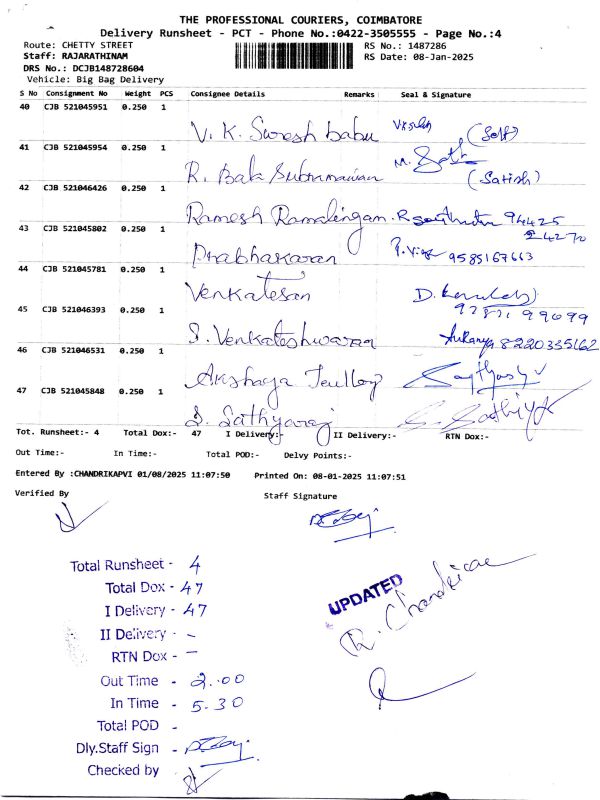 THE PROFESSIONAL COURIERS, COIMBATORE
Delivery Runsheet - PCT - Phone No.:0422-3505555 - Page No.:4
Route: CHETTY STREET RS No.: 1487286
Staff: RAJARATHINAM RS Date: 08-Jan-2025
DRS No.: DCJB148728604
Vehicle: Big Bag Delivery
S No Consignment No Weight PCS Consignee Details Remarks Seal & Signature
40 CJB 521045951 0.250 1
V. K. Suresh babu (Self)
41 CJB 521045954 0.250 1
R. Bala Subramanian M. Sath (Satish)
42 CJB 521046426 0.250 1
Ramesh Ramalingam 94425
43 CJB 521045802 0.250 1
Prabhakaran 9585167663
44 CJB 521045781 0.250 1
Venkatesan
45 CJB 521046393 0.250 1
S. Venkateshwaran 8220335162
46 CJB 521046531 0.250 1
Akshaya
47 CJB 521045848 0.250 1
S. Sathyaraj
Tot. Runsheet:- 4 Total Dox:- 47 I Delivery:- II Delivery:- RTN Dox:-
Out Time:- In Time:- Total POD:- Delvy Points:-
Entered By :CHANDRIKAPVI 01/08/2025 11:07:50 Printed On: 08-01-2025 11:07:51
Verified By Staff Signature
Total Runsheet - 4
Total Dox - 47
I Delivery - 47
II Delivery - -
RTN Dox - -
Out Time - 2.00
In Time - 5.30
Total POD -
Dly.Staff Sign -
Checked by
UPDATED